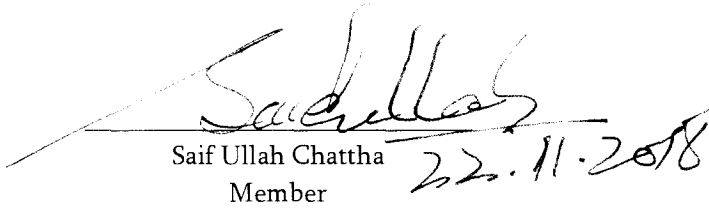 Saifullah
Saif Ullah Chattha
22.11.2018
Member